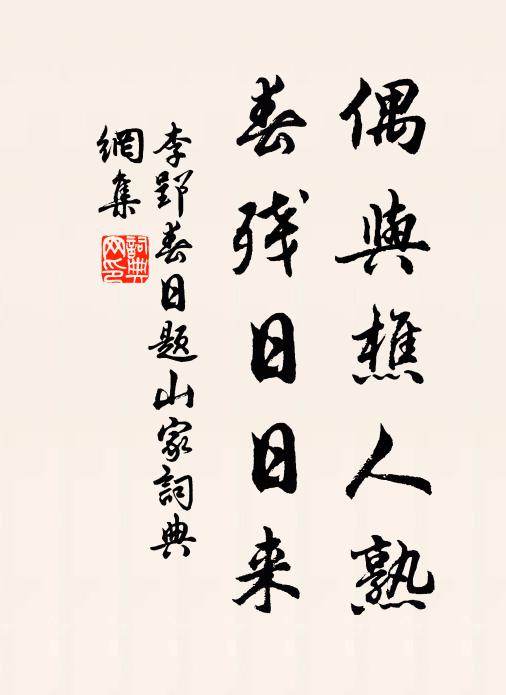 偶與樵人熟
春残日日来
李郢春日题山家詞典
網集
詞典网印